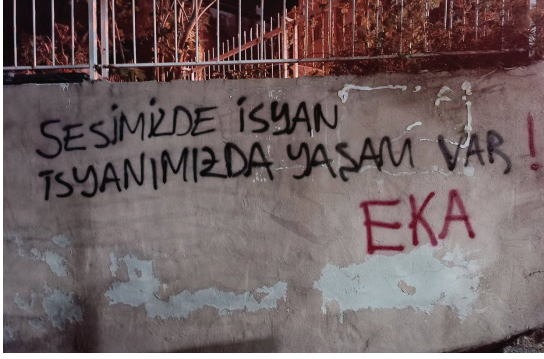 SESİMİZDE İSYAN
İSYANIMIZDA YAŞAM VAR!
EKA